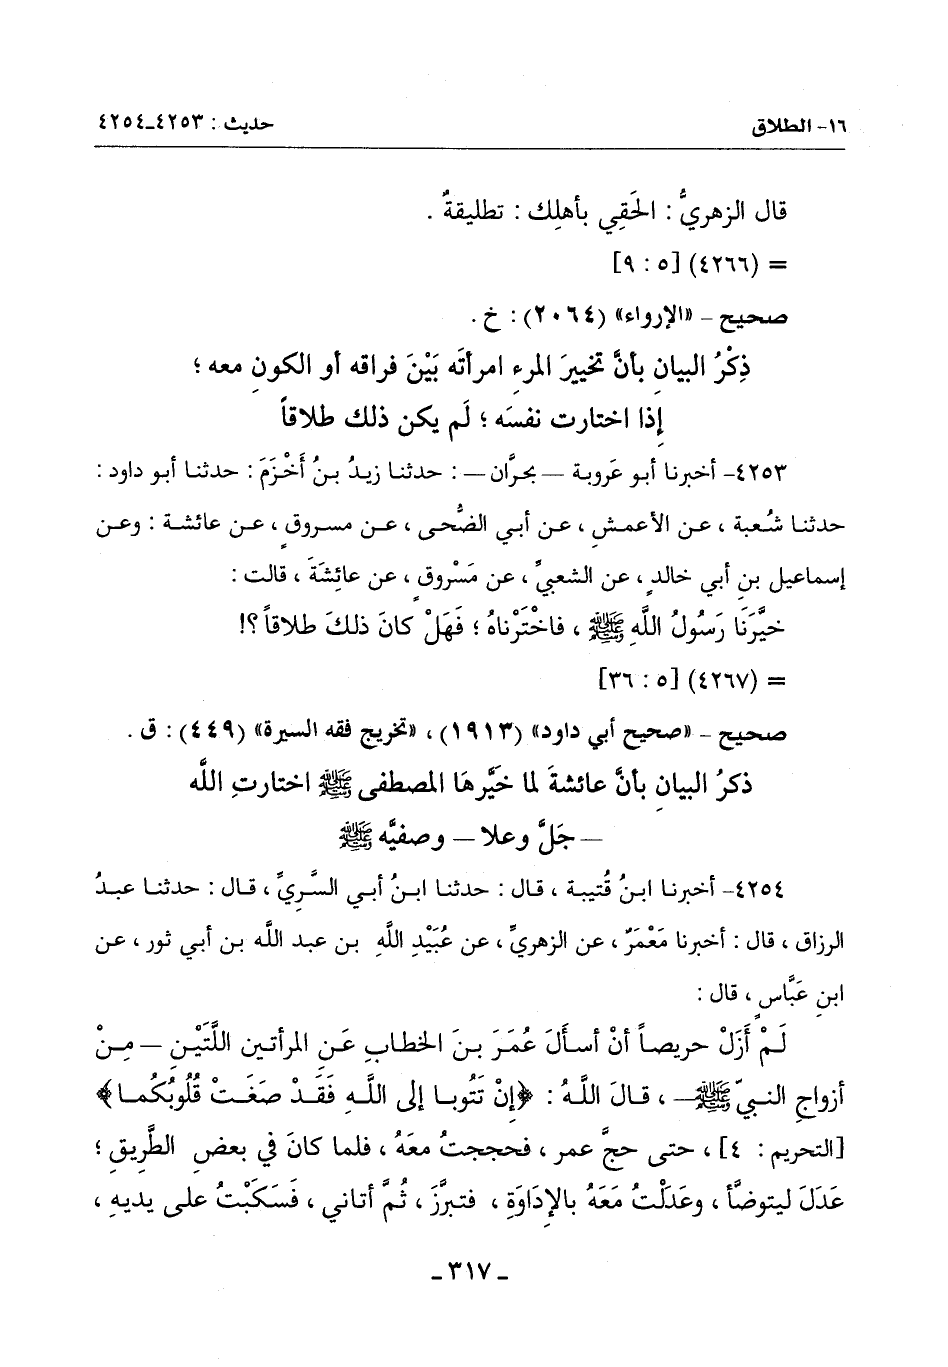 ١٦- الطلاق حديث : ٤٢٥٣-٤٢٥٤
قال الزهريُّ : الحَقِي بأهلِك : تطليقةٌ .
= (٤٢٦٦) [٥ : ٩]
صحيح – «الإرواء» (٢٠٦٤) : خ .
ذِكْرُ البيانِ بأنَّ تخييرَ المرءِ امرأتَه بَيْنَ فراقه أو الكونِ معه ؛
إذا اختارت نفسَه ؛ لَم يكن ذلك طلاقاً
٤٢٥٣- أخبرنا أبو عَروبة – بحرَّان – : حدثنا زيدُ بنُ أَخْزَمَ : حدثنا أبو داود :
حدثنا شُعبة ، عن الأعمش ، عن أبي الضُّحى ، عن مسروقٍ ، عن عائشة : وعن
إسماعيل بنِ أبي خالدٍ ، عن الشعبيِّ ، عن مَسْروقٍ ، عن عائِشَةَ ، قالت :
خيَّرَنَا رَسُولُ اللَّهِ ﷺ ، فاخْتَرْناهُ ؛ فَهَلْ كانَ ذلكَ طلاقاً ؟!
= (٤٢٦٧) [٥ : ٣٦]
صحيح – «صحيح أبي داود» (١٩١٣) ، «تخريج فقه السيرة» (٤٤٩) : ق .
ذكرُ البيانِ بأنَّ عائشةَ لما خيَّرها المصطفى ﷺ اختارتِ اللَّه
– جَلَّ وعلا – وصفيَّه ﷺ
٤٢٥٤- أخبرنا ابنُ قُتيبة ، قال : حدثنا ابنُ أبي السَّرِيِّ ، قال : حدثنا عبدُ
الرزاق ، قال : أخبرنا مَعْمَرٌ ، عن الزهريِّ ، عن عُبَيْدِ اللَّهِ بن عبد اللَّه بن أبي ثور ، عن
ابنِ عبَّاسٍ ، قال :
لَمْ أَزَلْ حريصاً أنْ أسألَ عُمَرَ بنَ الخطابِ عَنِ المرأتين اللَّتَيْنِ – مِنْ
أزواجِ النبيّ ﷺ – ، قالَ اللَّهُ : ﴿إنْ تَتُوبا إلى اللَّهِ فَقَدْ صَغَتْ قُلُوبُكُما﴾
[التحريم : ٤] ، حتى حجَّ عمر ، فحججتُ معَهُ ، فلما كانَ في بعضِ الطَّريقِ ؛
عَدَلَ ليتوضَّأ ، وعَدَلْتُ مَعَهُ بالإدَاوَةِ ، فتبرَّزَ ، ثُمَّ أتاني ، فَسَكَبْتُ على يديهِ ،
- ٣١٧ -